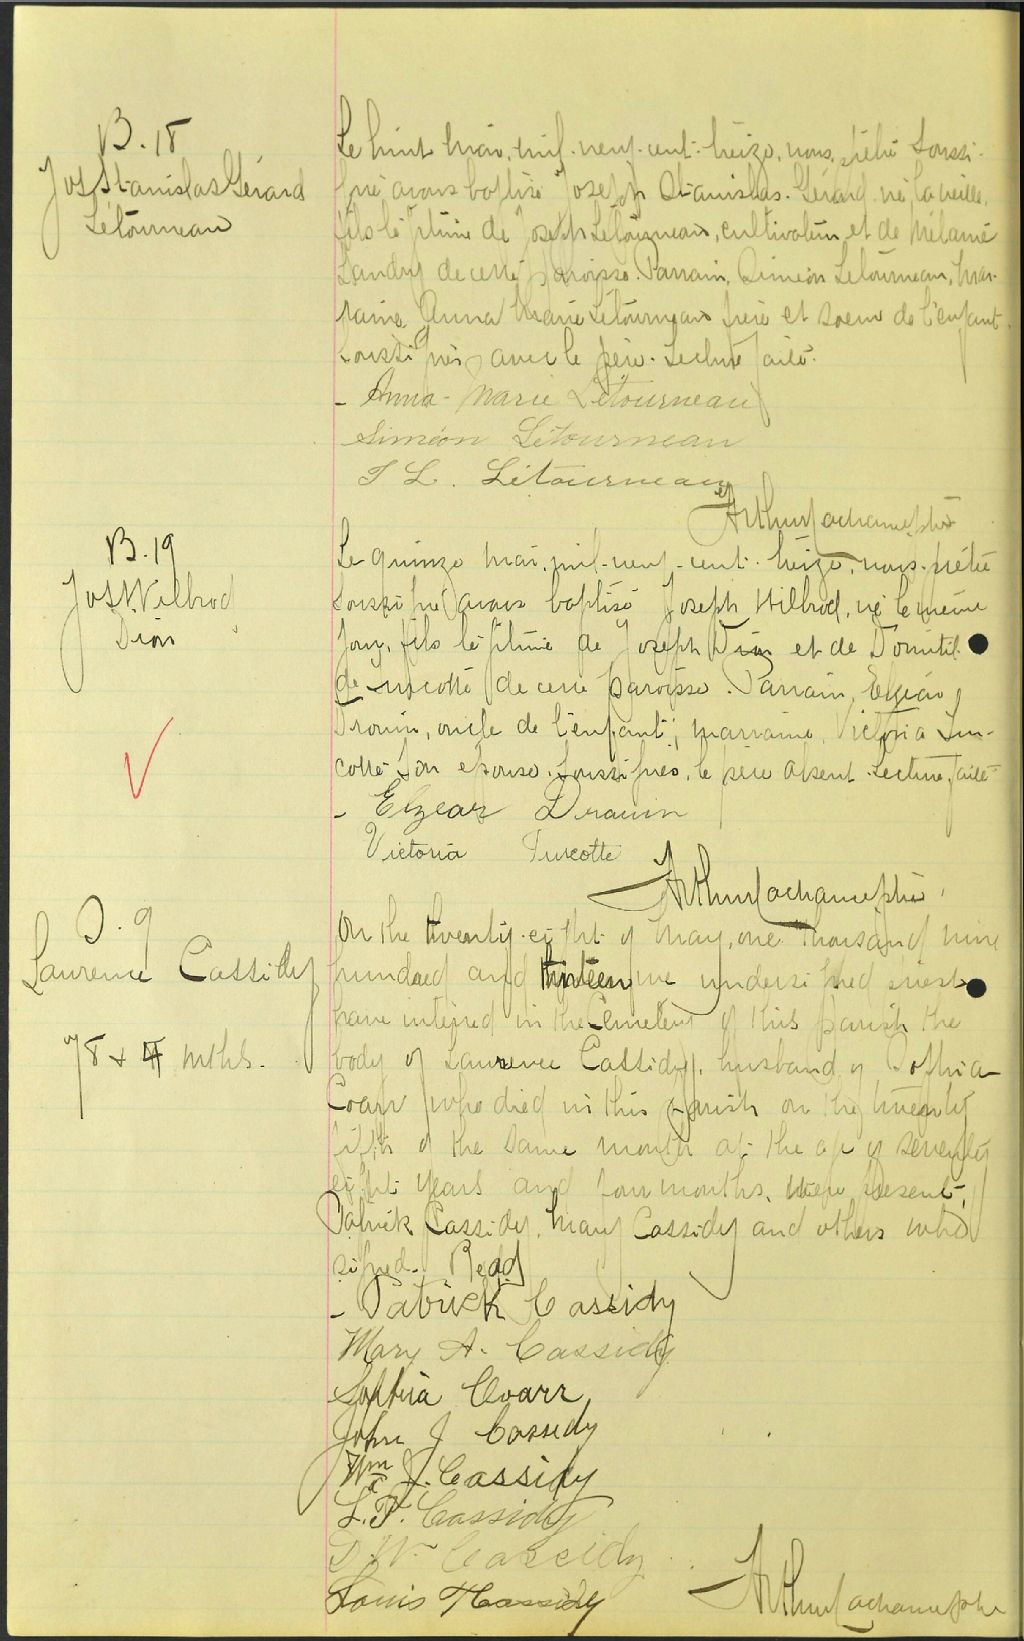 B. 18
Jos. Stanislas Gérard
Létourneau
Le huit mai, mil-neuf-cent-treize, nous, prêtre soussi-
gné avons baptisé Joseph Stanislas-Gérard né la veille,
fils légitime de Joseph Létourneau, cultivateur et de Mélanie
Landry de cette paroisse. Parrain, Siméon Létourneau, mar-
raine Anna Marie Létourneau frère et soeur de l'enfant
soussignés avec le père. Lecture faite.
- Anna-Marie Létourneau
Siméon Létourneau
J L. Létourneau
Arthur Lachance ptre
B. 19
Jos. Wilbrod
Dion
Le quinze mai, mil-neuf-cent-treize, nous prêtre
soussigné avons baptisé Joseph Wilbrod, né le même
jour, fils légitime de Joseph Dion et de Domitil-
de Turcotte de cette paroisse. Parrain, Elzéar
Drouin, oncle de l'enfant; marraine, Victoria Tur-
cotte son épouse, soussignés, le père absent. Lecture faite
- Elzear Drouin
Victoria Turcotte
Arthur Lachance ptre
S. 9
Lawrence Cassidy
78 & 4 mths.
On the twenty-eight of May, one thousand nine
hundred and thirteen we undersigned priest
have interred in the Cemetery of this parish the
body of Lawrence Cassidy, husband of Sophia
Coarr who died in this parish on the twenty
fifth of the same month at the age of seventy
eight years and four months. Were present,
Patrick Cassidy, Mary Cassidy and others who
signed. Read
- Patrick Cassidy
Mary A. Cassidy
Sophia Coarr
John J Cassidy
Wm J. Cassidy
L. P. Cassidy
D. W. Cassidy
Louis Cassidy
Arthur Lachance ptre